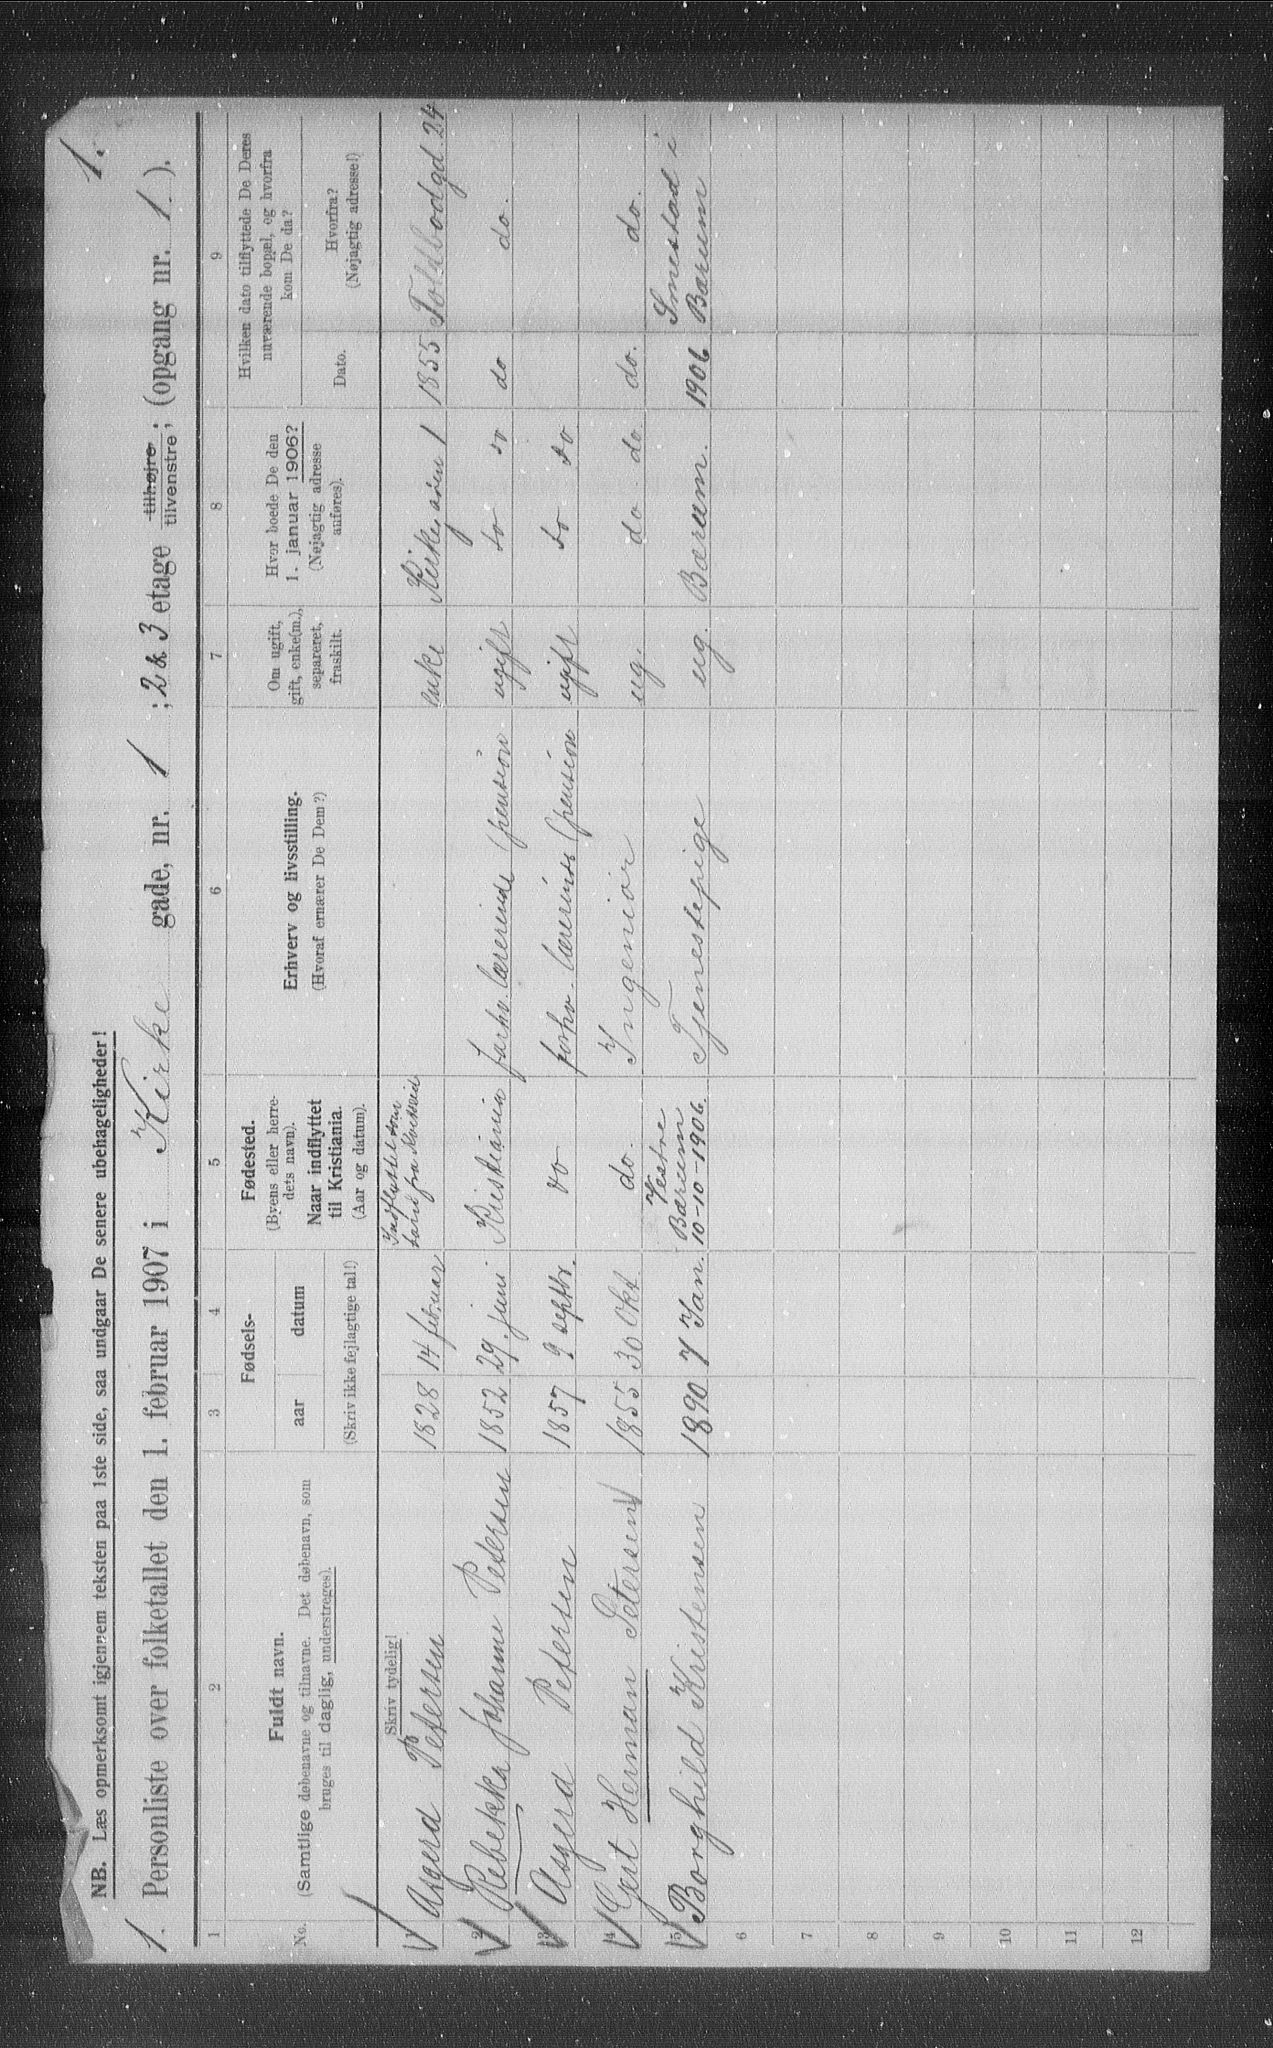 1.
NB. Læs opmerksomt igjennem teksten paa 1ste side, saa undgaar De senere ubehageligheder!
1. Personliste over folketallet den 1. februar 1907 i Kirke gade, nr. 1 ; 2 & 3 etage tilhøjre tilvenstre ; (opgang nr. 1 ).
1 2 3 4 5 6 7 8 9
No.
Fuldt navn.
(Samtlige døbenavne og tilnavne. Det døbenavn, som
bruges til daglig, understreges).
Fødsels-
aar datum
(Skriv ikke fejlagtige tal!)
Fødested.
(Byens eller herre-
dets navn).
Naar indflyttet
til Kristiania.
(Aar og datum).
Erhverv og livsstilling.
(Hvoraf ernærer De Dem?)
Om ugift,
gift, enke(m.),
separeret,
fraskilt.
Hvor boede De den
1. januar 1906?
(Nøjagtig adresse
anføres).
Hvilken dato tilflyttede De Deres
nuværende bopæl, og hvorfra
kom De da?
Dato.
Hvorfra?
(Nøjagtig adresse!)
Skriv tydelig!
Asgerd Petersen 1828 14 februar Indflyttet som barn fra enke Kirkegaten 1 1855 Toldbodgd. 24
2 Rebekka Johanne Petersen 1852 29. juni Kristiania forhv. lærerinde (pension ugift do do do do.
3 Asgerd Petersen 1857 9 septbr. do forhv. lærerinde (pension ugift do do
4 Gert Herman Petersen 1855 30 Okt. do. Ingeniør ug. do do. do. do.
5 Borghild Kristensen 1890 7 Jan. Vestre Bærum 10-10-1906. Tjenestepige ug. Bærum. 1906 Smestad i Bærum
6
7
8
9
10
11
12